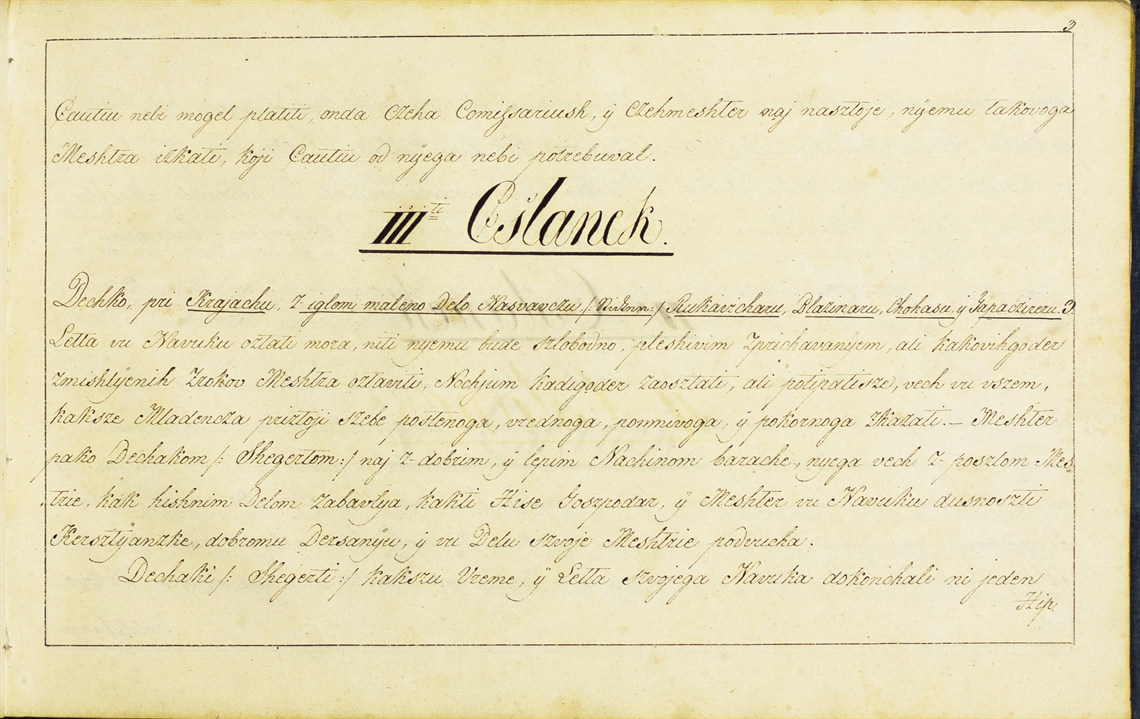 3
Cautiu nebi mogel platiti, onda Czeha Comißariush, ÿ Czehmeshter naj nasztoje, nÿemu takovoga
Meshtra izkati, koji Cautiu od nÿega nebi potrebuval.
IIIti Cslanek.
Dechko, pri Krajachu, z iglom maleno Delo Nasvavczu /: :/ Rukavicharu, Blazinaru, Chohasu ÿ Japaczireru 3
Letta vu Navuku osztati mora, niti nyemu bude szlobodno, pleshivim Zprichavanyem, ali kakovihgoder
zmishlÿenih Zrokov Meshtra osztaviti, Nochjum kadigoder zaosztati, ali potipatisze, vech vu vszem,
kaksze Mladencza prisztoji szebe postenoga, vrednoga, pomnivoga, ÿ pokornoga zkazati. – Meshter
pako Dechakom /: Shegertom :/ naj z-dobrim, ÿ lepim Nachinom barache, nyega vech z-poszlom Mes-
trie, kak hishnim Delom zabavlya, kakti Hise Goszpodar, ÿ Meshter vu Navuku dusnoszti
Kersztÿanzke, dobromu Dersanÿu, ÿ vu Delu szvoje Meshtrie podvucka.
Dechaki /: Shegerti :/ kakszu Vreme, ÿ Letta szvojega Navuka dokonchali ni jeden
Hip